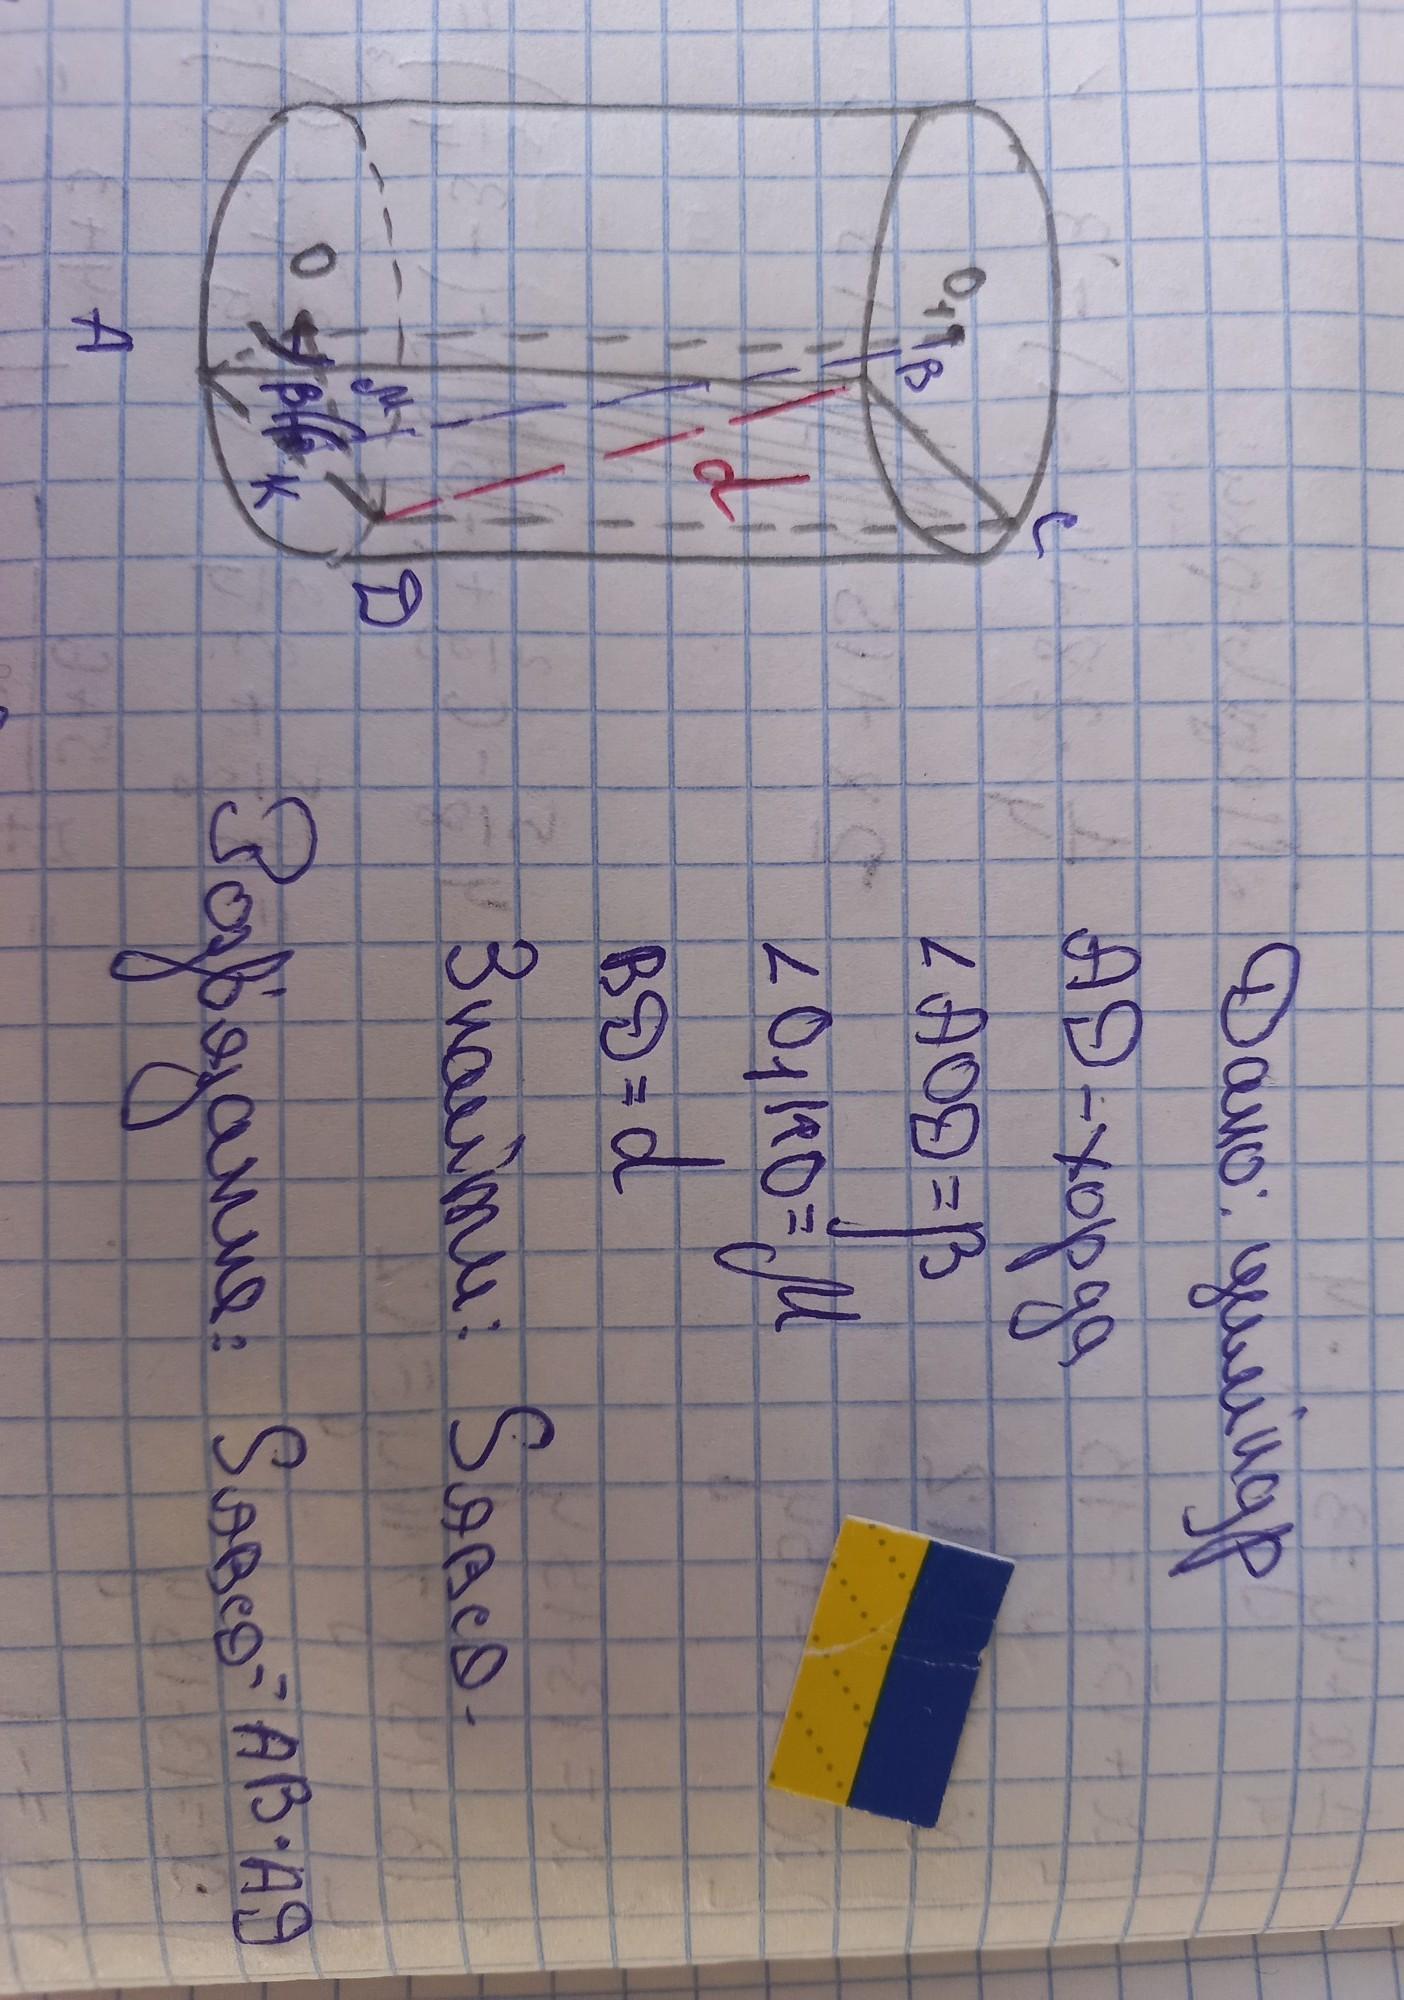 Дано: циліндр
АД - хорда
∠АОД = β
∠O₁KO = μ
ВД = d
Знайти: SABCD.
Розв'язання: SABCD = AB·AД
O₁
B
C
d
O
μ
β
K
A
D